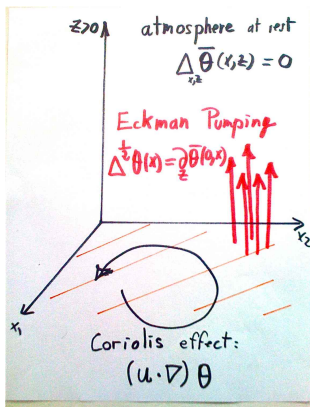 z>0
atmosphere at rest
Δx,z θ̄(x,z) = 0
Eckman Pumping
Δ^½ θ(x) = ∂z θ̄(0,x)
x2
x1
Coriolis effect:
(u·∇) θ